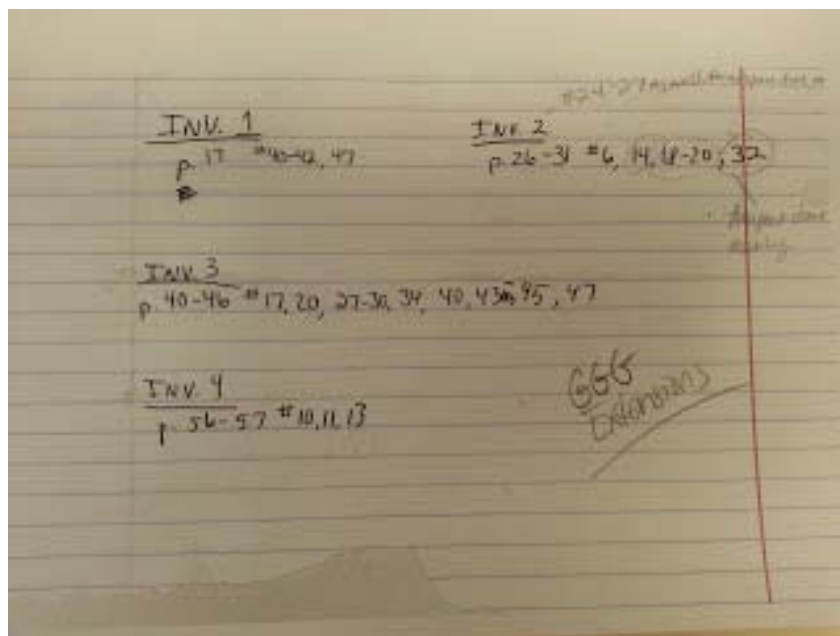 INV. 1
p. 17 #40-42, 47
INV. 2
p. 26-31 #6, 14, 18-20, 32
INV. 3
p. 40-46 #17, 20, 27-30, 34, 40, 43 45, 47
INV. 4
p. 56-57 #10, 11, 13
GGG
Extensions